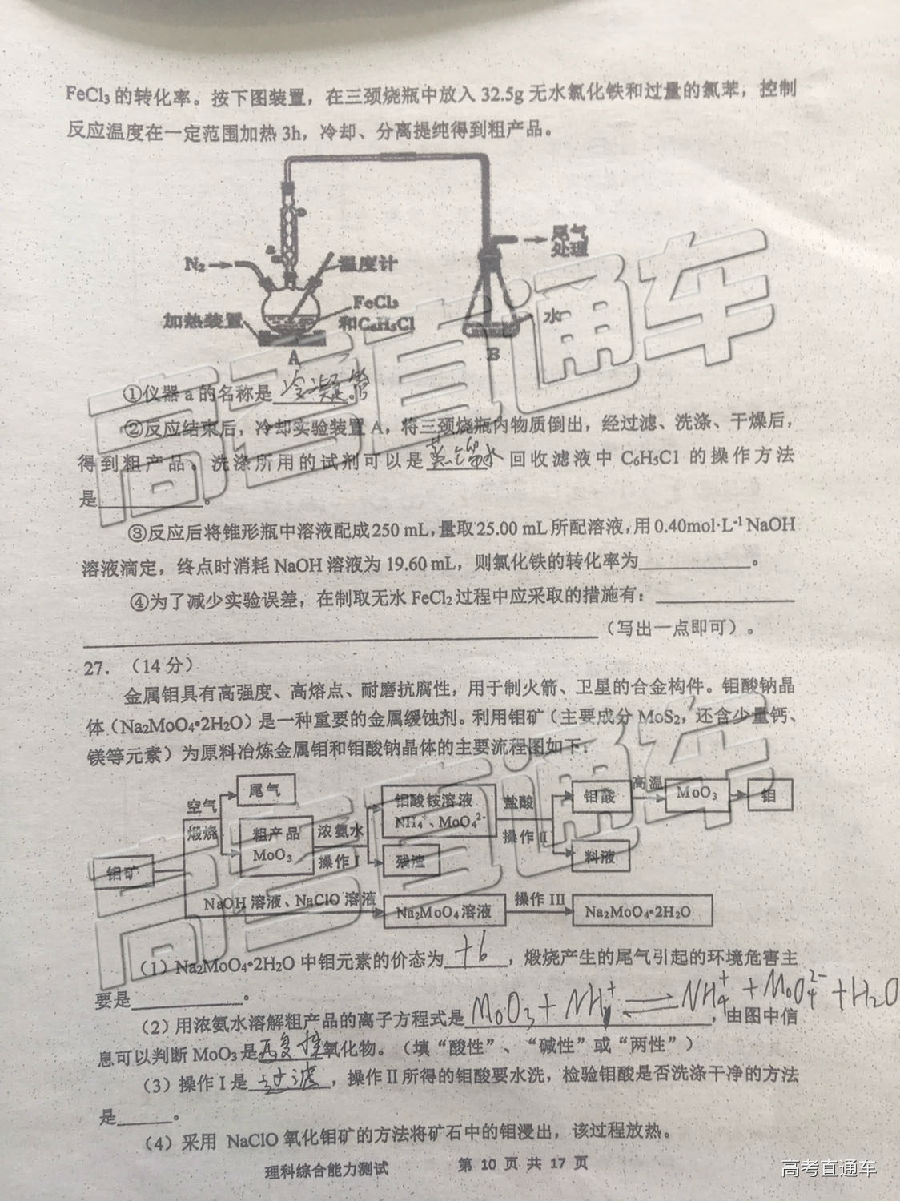 FeCl₃的转化率。按下图装置，在三颈烧瓶中放入 32.5g 无水氯化铁和过量的氯苯，控制
反应温度在一定范围加热 3h，冷却、分离提纯得到粗产品。
尾气
处理
N₂
温度计
FeCl₃
和C₆H₅Cl
加热装置
水
A
B
①仪器 a 的名称是 冷凝管
②反应结束后，冷却实验装置 A，将三颈烧瓶内物质倒出，经过滤、洗涤、干燥后，
得到粗产品。洗涤所用的试剂可以是 蒸馏水 回收滤液中 C₆H₅Cl 的操作方法
是________。
③反应后将锥形瓶中溶液配成 250 mL，量取 25.00 mL 所配溶液，用 0.40mol·L⁻¹ NaOH
溶液滴定，终点时消耗 NaOH 溶液为 19.60 mL，则氯化铁的转化率为________。
④为了减少实验误差，在制取无水 FeCl₂ 过程中应采取的措施有：________
________（写出一点即可）。
27．（14 分）
金属钼具有高强度、高熔点、耐磨抗腐性，用于制火箭、卫星的合金构件。钼酸钠晶
体（Na₂MoO₄•2H₂O）是一种重要的金属缓蚀剂。利用钼矿（主要成分 MoS₂，还含少量钙、
镁等元素）为原料冶炼金属钼和钼酸钠晶体的主要流程图如下：
钼矿
空气
煅烧
尾气
粗产品
MoO₃
浓氨水
操作 I
钼酸铵溶液
NH₄⁺、MoO₄²⁻
残渣
盐酸
操作 II
钼酸
高温
MoO₃
钼
料液
NaOH 溶液、NaClO 溶液
Na₂MoO₄ 溶液
操作 III
Na₂MoO₄•2H₂O
（1）Na₂MoO₄•2H₂O 中钼元素的价态为 +6 ，煅烧产生的尾气引起的环境危害主
要是________。
（2）用浓氨水溶解粗产品的离子方程式是 MoO₃ + NH₄⁺ ⇌ NH₄⁺ + MoO₄²⁻ + H₂O ，由图中信
息可以判断 MoO₃ 是________氧化物。（填“酸性”、“碱性”或“两性”）
（3）操作 I 是 过滤 ，操作 II 所得的钼酸要水洗，检验钼酸是否洗涤干净的方法
是____。
（4）采用 NaClO 氧化钼矿的方法将矿石中的钼浸出，该过程放热。
理科综合能力测试 第 10 页 共 17 页
高考直通车
高考直通车
高考直通车